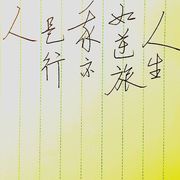 人生
如逆旅
我亦
是行
人